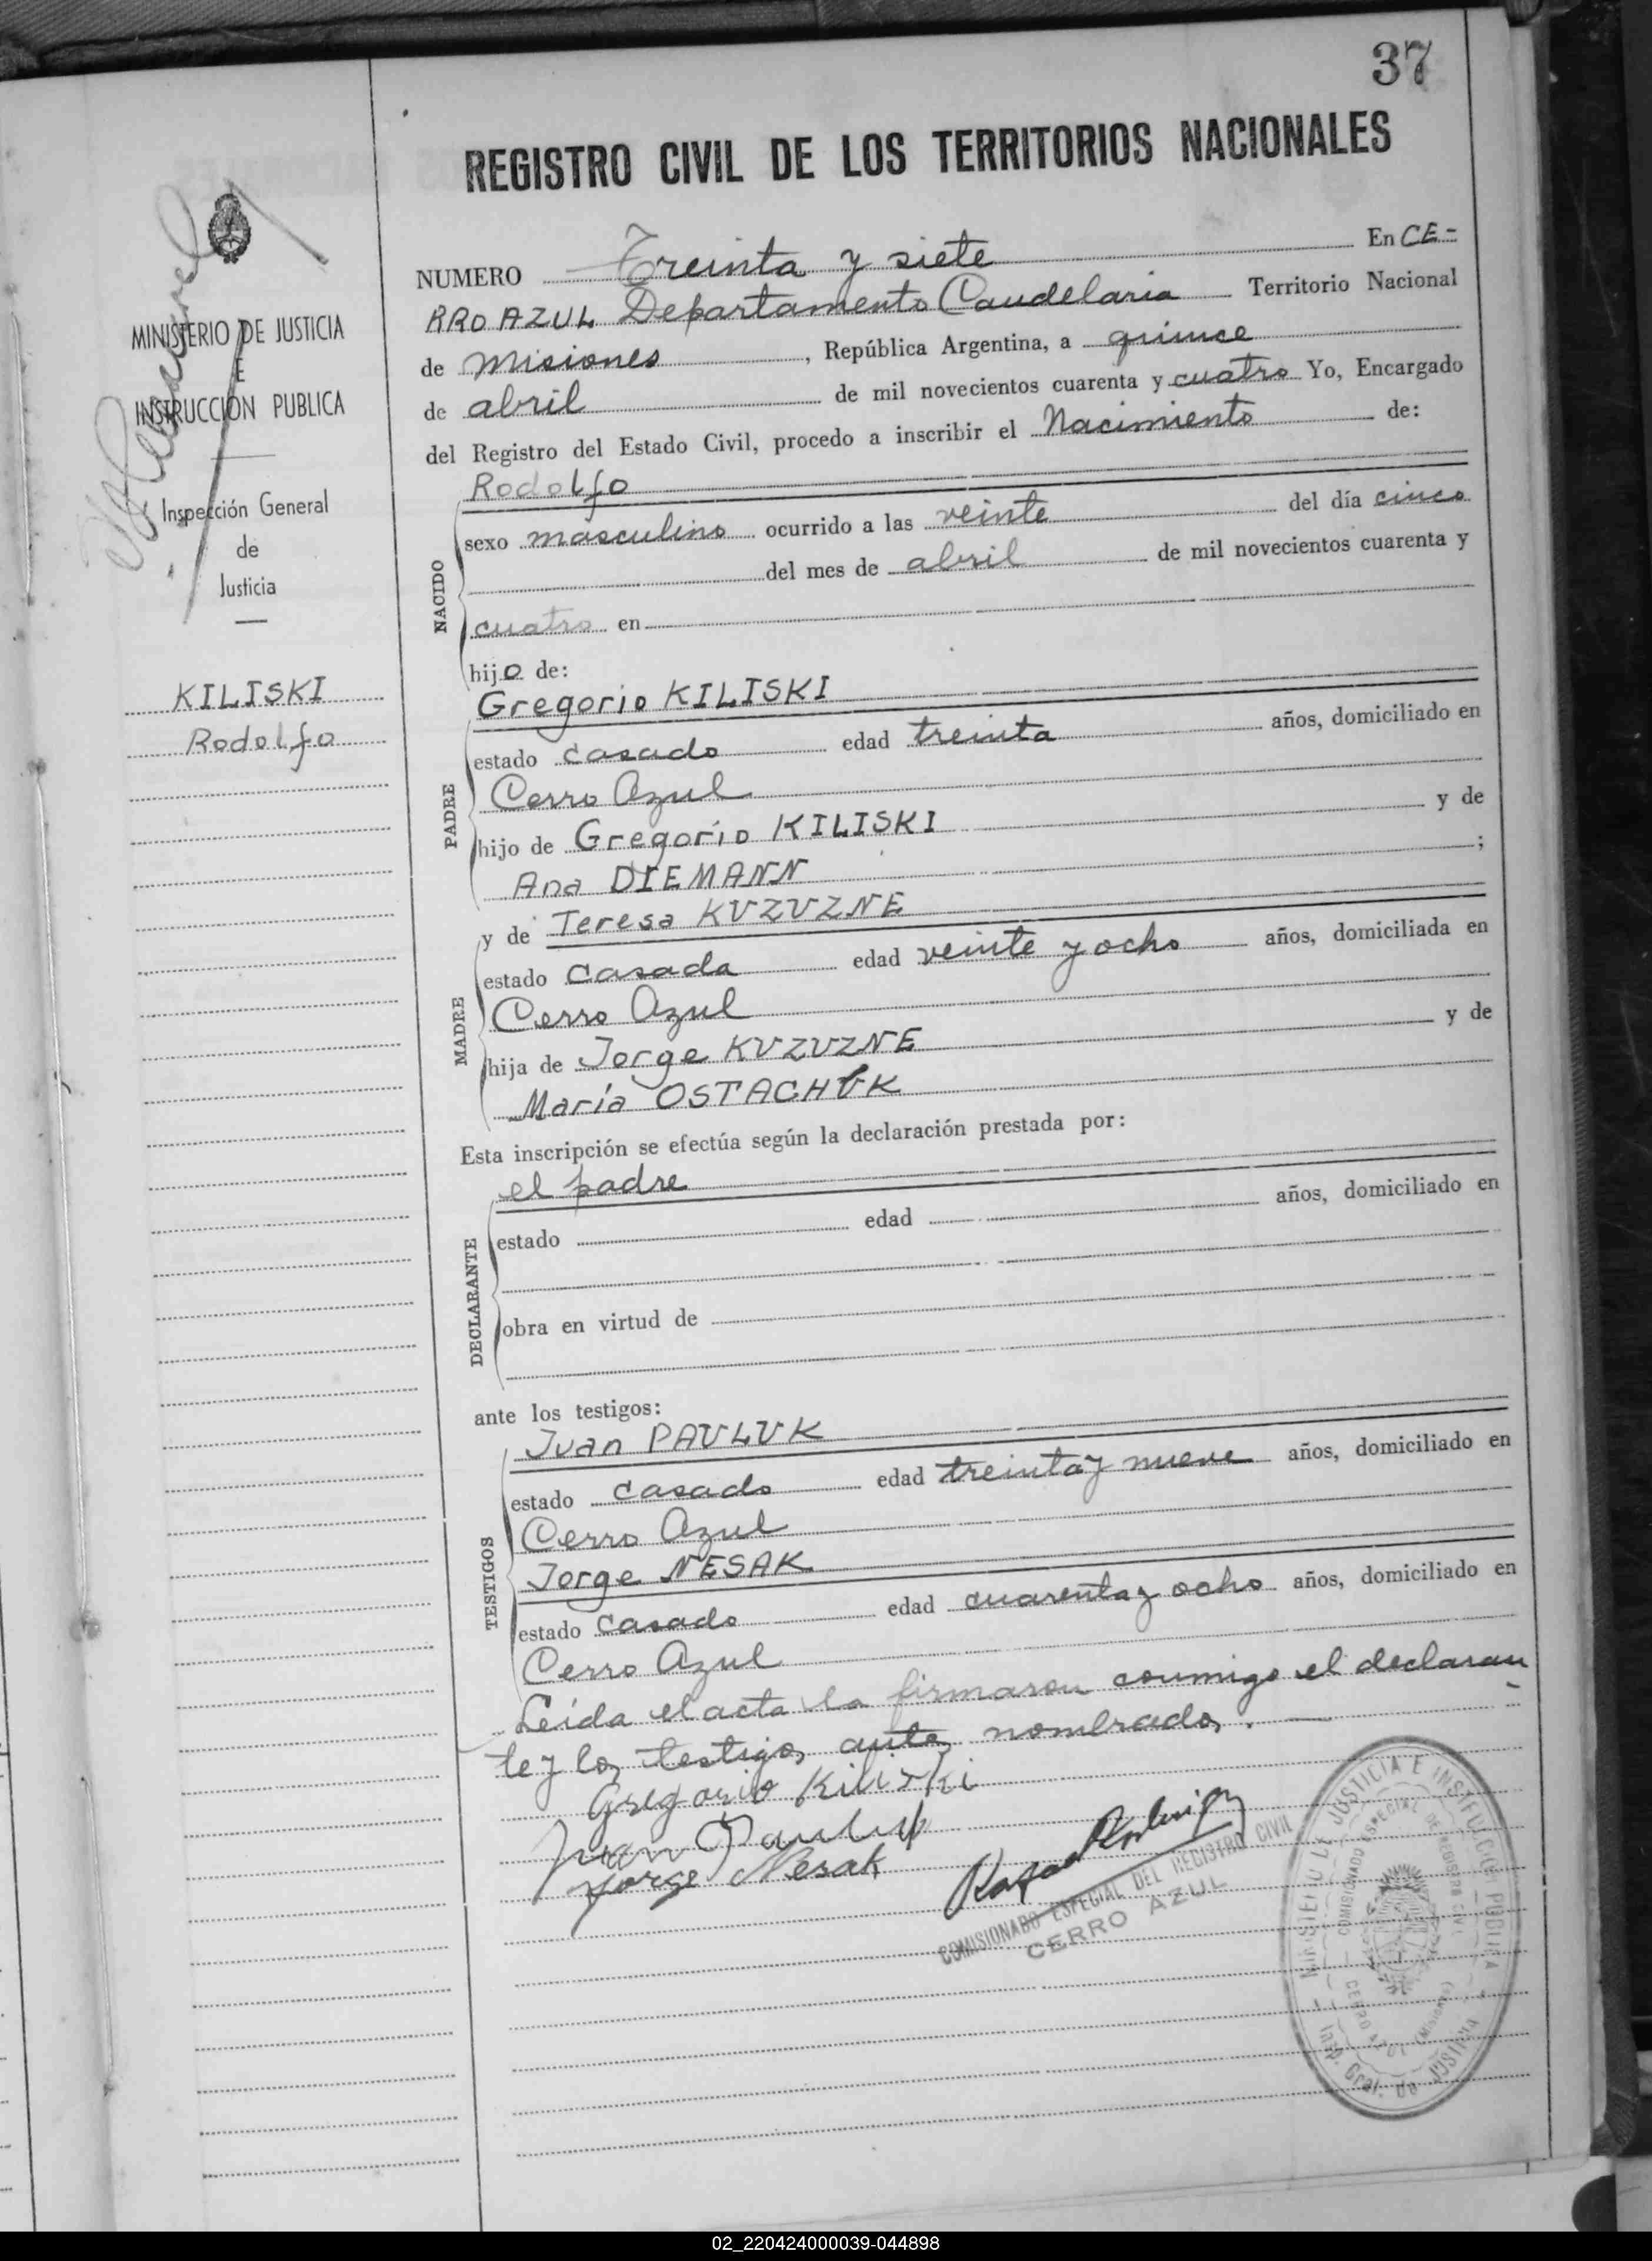 37
REGISTRO CIVIL DE LOS TERRITORIOS NACIONALES
MINISTERIO DE JUSTICIA
E
INSTRUCCIÓN PUBLICA
Inspección General
de
Justicia
KILISKI
Rodolfo
NUMERO Treinta y siete En CE-
RRO AZUL Departamento Candelaria Territorio Nacional
de Misiones, República Argentina, a quince
de abril de mil novecientos cuarenta y cuatro Yo, Encargado
del Registro del Estado Civil, procedo a inscribir el Nacimiento de:
NACIDO
Rodolfo
sexo masculino ocurrido a las veinte del día cinco
del mes de abril de mil novecientos cuarenta y
cuatro en
hijo de:
PADRE
Gregorio KILISKI
estado casado edad treinta años, domiciliado en
Cerro Azul
hijo de Gregorio KILISKI y de
Ana DIEMANN ;
MADRE
y de Teresa KUZUZNE
estado casada edad veinte y ocho años, domiciliada en
Cerro Azul
hija de Jorge KUZUZNE y de
María OSTACHUK
Esta inscripción se efectúa según la declaración prestada por:
DECLARANTE
el padre
estado edad años, domiciliado en
obra en virtud de
ante los testigos:
TESTIGOS
Juan PAULUK
estado casado edad treinta y nueve años, domiciliado en
Cerro Azul
Jorge NESAK
estado casado edad cuarenta y ocho años, domiciliado en
Cerro Azul
Leída el acta la firmaron conmigo el declaran
te y los testigos antes nombrados. -
Gregorio Kiliski
Juan Pauluk
Jorge Nesak
COMISIONADO ESPECIAL DEL REGISTRO CIVIL
CERRO AZUL
MINISTERIO DE JUSTICIA E INSTRUCCIÓN PUBLICA
COMISIONADO ESPECIAL DE REGISTRO CIVIL
CERRO AZUL (Misiones)
Insp. Gral. de Justicia
02_220424000039-044898